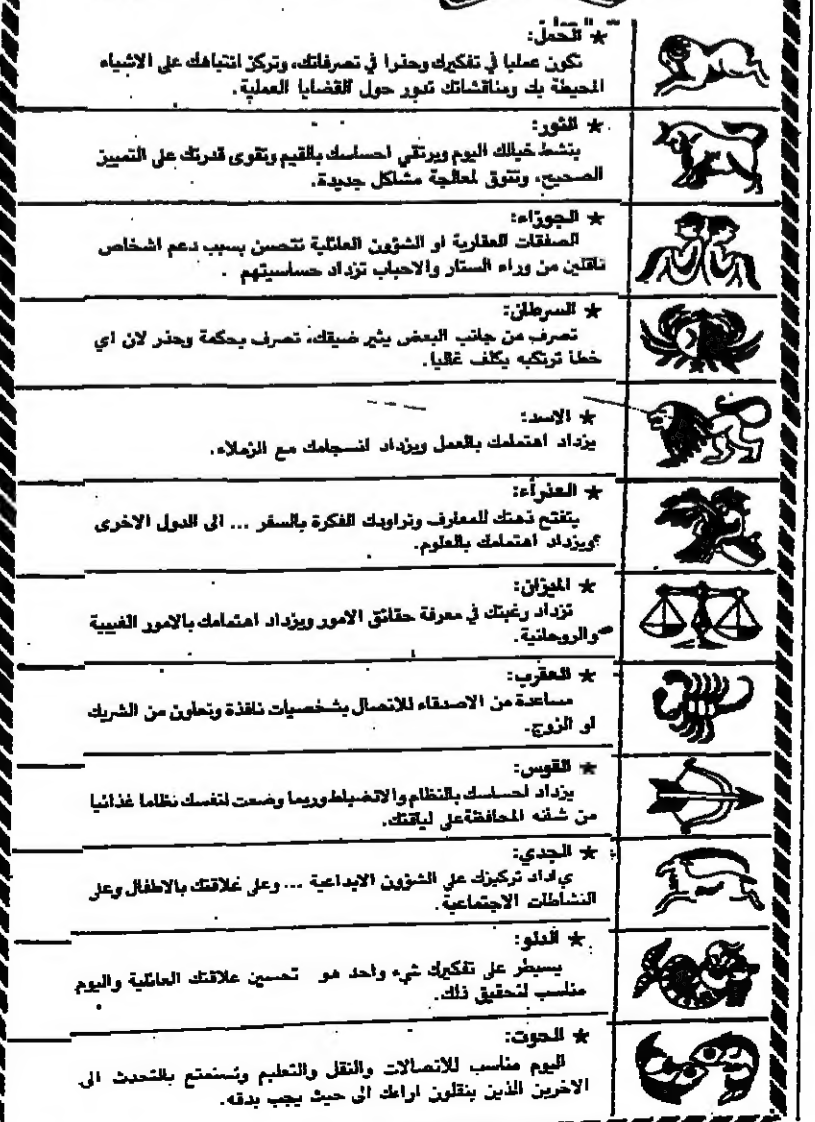 ★ الحمل:
تكون عمليا في تفكيرك وحذرا في تصرفاتك، وتركز انتباهك على الاشياء
المحيطة بك ومناقشاتك تدور حول القضايا العملية.
★ الثور:
ينشط خيالك اليوم ويرتقي احساسك بالقيم وتقوى قدرتك على التمييز
الصحيح، وتتوق لمعالجة مشاكل جديدة.
★ الجوزاء:
الصفقات العقارية او الشؤون العائلية تتحسن بسبب دعم اشخاص
نافذين من وراء الستار والاحباب تزداد حساسيتهم .
★ السرطان:
تصرف من جانب البعض يثير ضيقك، تصرف بحكمة وحذر لان اي
خطأ ترتكبه يكلف غاليا.
★ الاسد:
يزداد اهتمامك بالعمل ويزداد انسجامك مع الزملاء.
★ العذراء:
يتفتح ذهنك للمعارف وتراودك الفكرة بالسفر ... الى الدول الاخرى
ويزداد اهتمامك بالعلوم.
★ الميزان:
تزداد رغبتك في معرفة حقائق الامور ويزداد اهتمامك بالامور الغيبية
والروحانية.
★ العقرب:
مساعدة من الاصدقاء للاتصال بشخصيات نافذة وتعاون من الشريك
او الزوج.
★ القوس:
يزداد احساسك بالنظام والانضباط وربما وضعت لنفسك نظاما غذائيا
من شأنه المحافظة على لياقتك.
★ الجدي:
يزداد تركيزك على الشؤون الابداعية ... وعلى علاقتك بالاطفال وعلى
النشاطات الاجتماعية.
★ الدلو:
يسيطر على تفكيرك شيء واحد هو تحسين علاقتك العائلية واليوم
مناسب لتحقيق ذلك.
★ الحوت:
اليوم مناسب للاتصالات والنقل والتعليم وتستمتع بالتحدث الى
الاخرين الذين ينقلون اراءك الى حيث يجب بدقه.